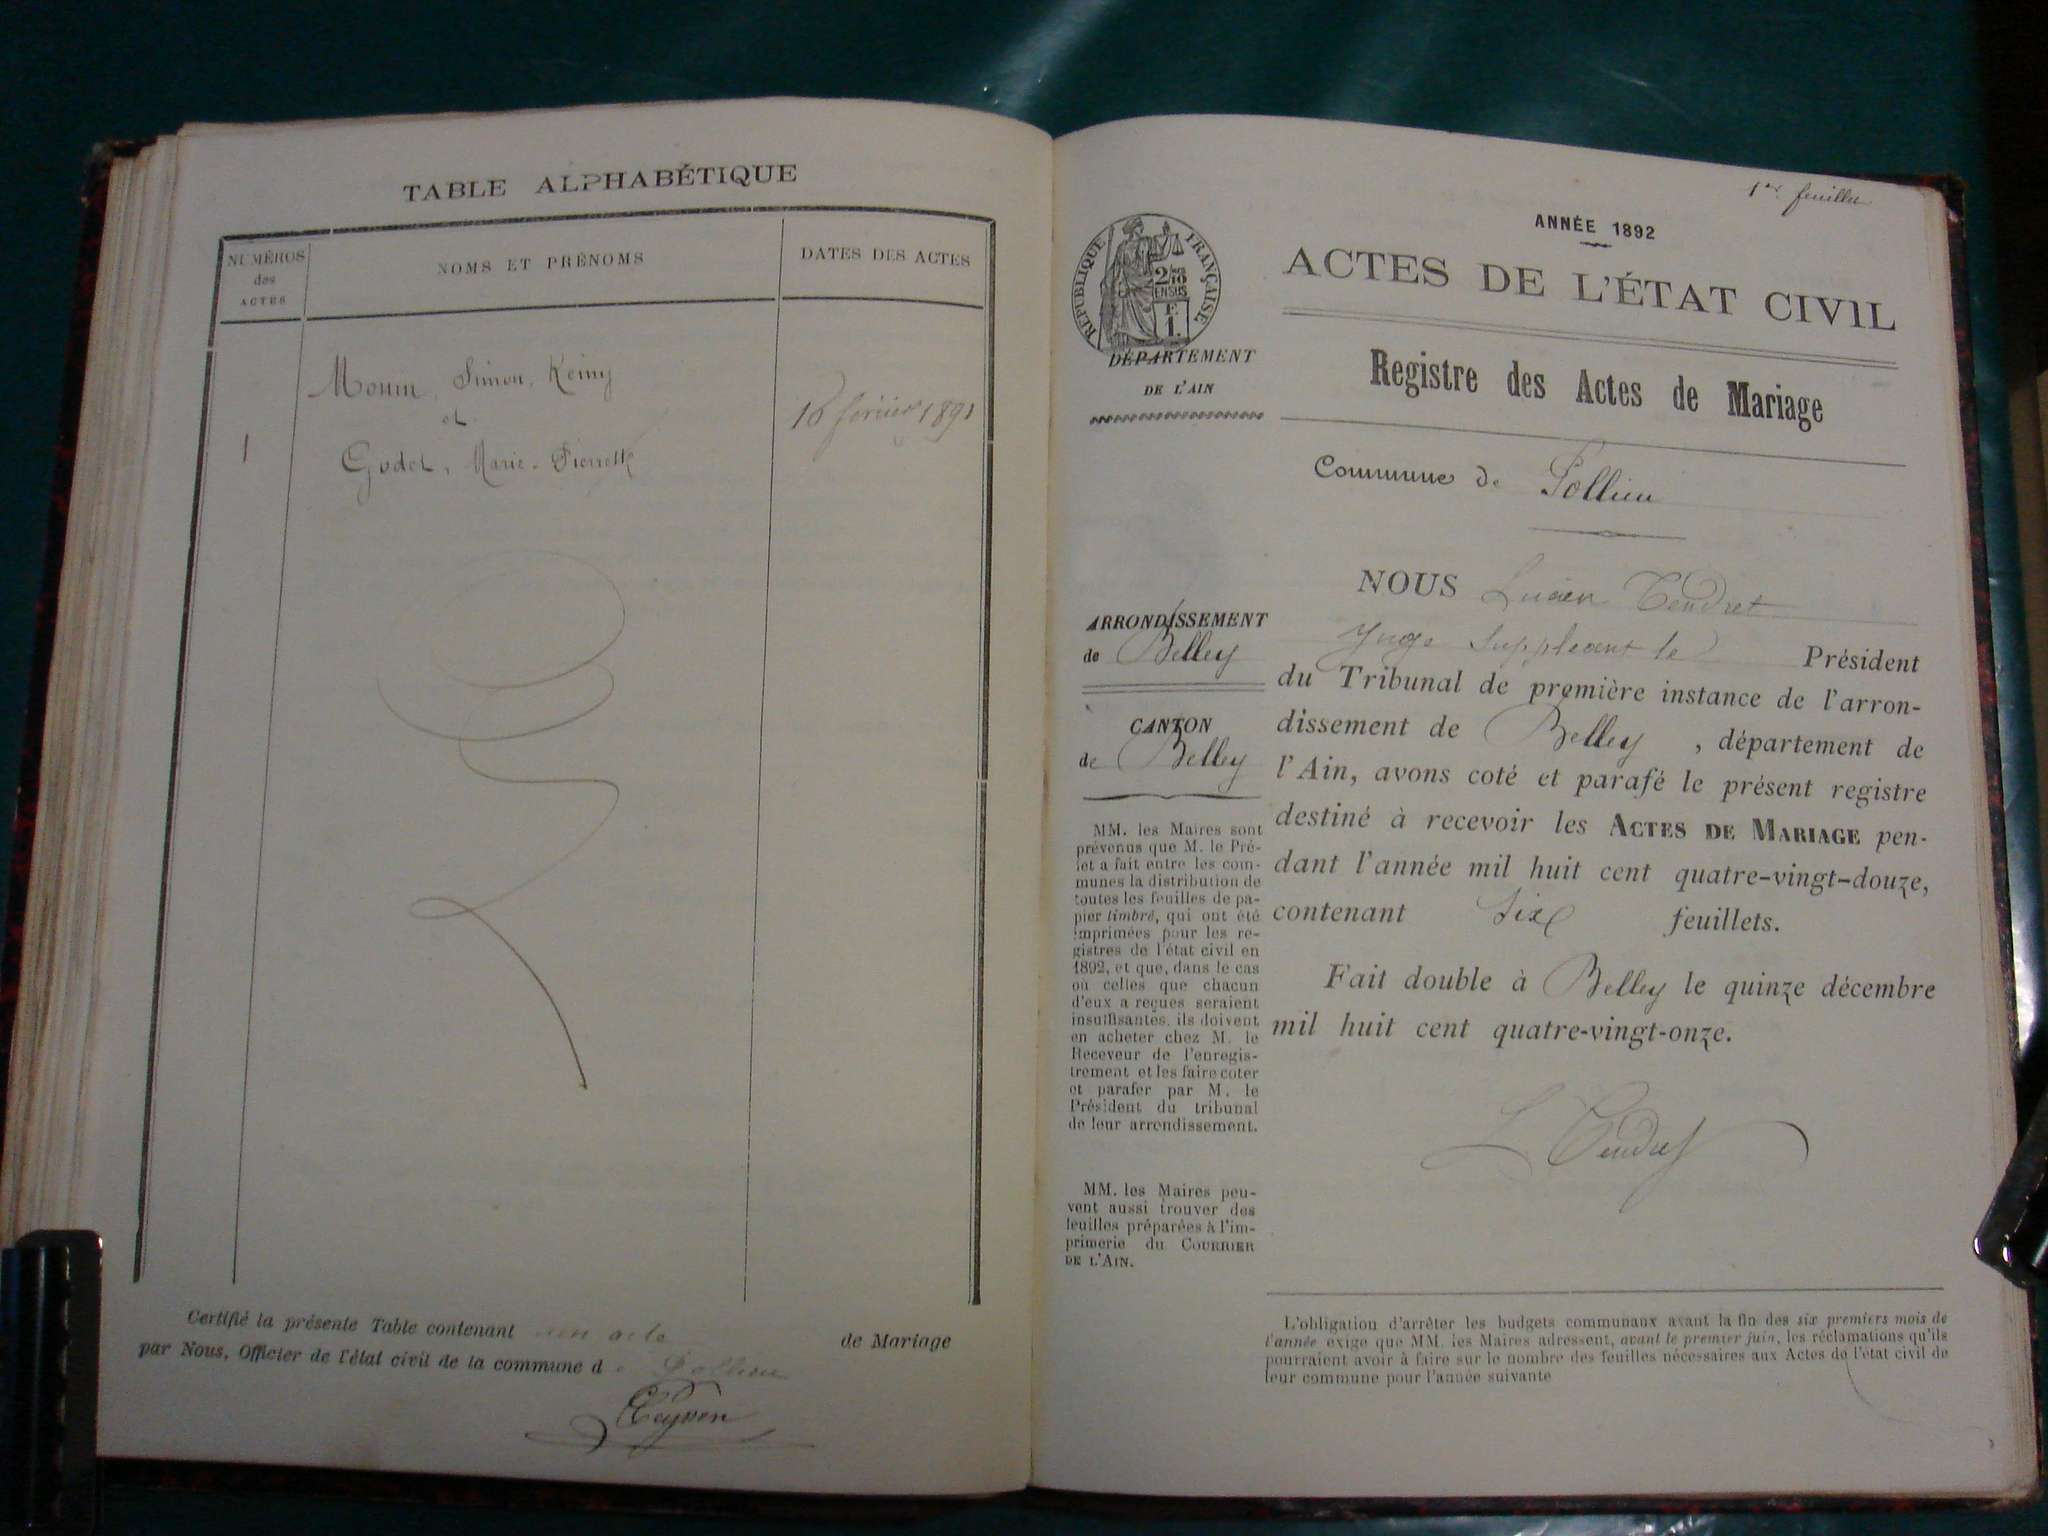 TABLE ALPHABÉTIQUE
NUMÉROS
des
ACTES
NOMS ET PRÉNOMS
DATES DES ACTES
1
Simon, Rémy
et
Godet, Marie-Pierrette
16 février 1891
Certifié la présente Table contenant un acte de Mariage
par Nous, Officier de l'état civil de la commune de Pollieu
1er feuillet
ANNÉE 1892
ACTES DE L'ÉTAT CIVIL
RÉPUBLIQUE FRANÇAISE
2/10
EN SUS
F.
1.
DÉPARTEMENT
DE L'AIN
Registre des Actes de Mariage
Commune de Pollieu
ARRONDISSEMENT
de Belley
CANTON
de Belley
MM. les Maires sont
prévenus que M. le Pré-
fet a fait entre les com-
munes la distribution de
toutes les feuilles de pa-
pier timbré, qui ont été
imprimées pour les re-
gistres de l'état civil en
1892, et que, dans le cas
où celles que chacun
d'eux a reçues seraient
insuffisantes, ils doivent
en acheter chez M. le
Receveur de l'enregis-
trement et les faire coter
et parafer par M. le
Président du tribunal
de leur arrondissement.
MM. les Maires peu-
vent aussi trouver des
feuilles préparées à l'im-
primerie du COURRIER
DE L'AIN.
NOUS Lucien Tendret
Juge Suppléant le Président
du Tribunal de première instance de l'arron-
dissement de Belley, département de
l'Ain, avons coté et parafé le présent registre
destiné à recevoir les ACTES DE MARIAGE pen-
dant l'année mil huit cent quatre-vingt-douze,
contenant Six feuillets.
Fait double à Belley le quinze décembre
mil huit cent quatre-vingt-onze.
L Tendret
L'obligation d'arrêter les budgets communaux avant la fin des six premiers mois de
l'année exige que MM. les Maires adressent, avant le premier juin, les réclamations qu'ils
pourraient avoir à faire sur le nombre des feuilles nécessaires aux Actes de l'état civil de
leur commune pour l'année suivante